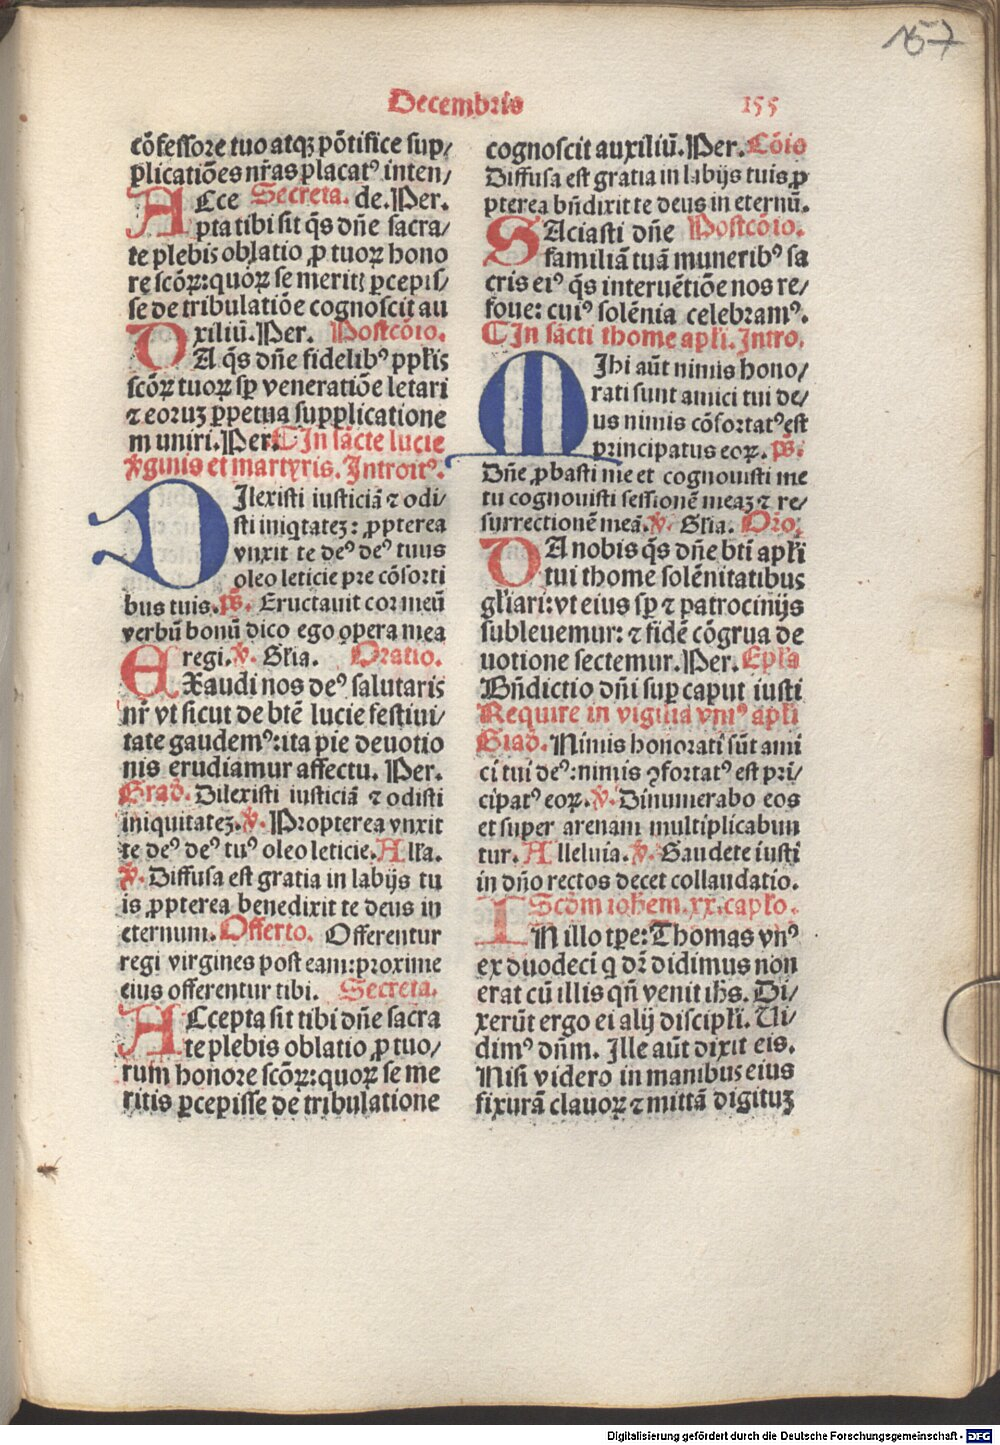 157
Decembris
155
cōfessore tuo atqꝫ pōtifice sup⸗
plicatiōes nr̄as placatꝰ inten⸗
Secreta. de. Per.
ACce
pta tibi sit q̄s dn̄e sacra⸗
te plebis oblatio ꝓ tuoꝝ hono
re scōꝝ: quoꝝ se meritis ꝑcepis⸗
se de tribulatiōe cognoscit au
xiliū. Per. Postcōio.
DA q̄s dn̄e fidelibꝰ ppl̄is
scōꝝ tuoꝝ sꝑ veneratiōe letari
⁊ eoruꝫ ꝑpetua supplicatione
muniri. Per. ¶ In sācte lucie
v̄ginis et martyris. Introitꝰ.
DIlexisti iusticiā ⁊ odi⸗
sti iniqtateꝫ: ꝓpterea
vnxit te deꝰ deꝰ tuus
oleo leticie pre cōsorti
bus tuis. p̄s. Eructauit cor meū
verbū bonū dico ego opera mea
regi. v̄. Gl̄ia. Oratio.
EXaudi nos deꝰ salutaris
nr̄ vt sicut de btē lucie festiui⸗
tate gaudemꝰ: ita pie deuotio
nis erudiamur affectu. Per.
Grad̄. Dilexisti iusticiā ⁊ odisti
iniquitateꝫ. v̄. Propterea vnxit
te deꝰ deꝰ tuꝰ oleo leticie. All̄a.
v̄. Diffusa est gratia in labijs tu
is ꝓpterea benedixit te deus in
eternum. Offerto. Offerentur
regi virgines post eam: proxime
eius offerentur tibi. Secreta.
ACcepta sit tibi dn̄e sacra
te plebis oblatio ꝓ tuo⸗
rum honore scōꝝ: quoꝝ se me
ritis ꝑcepisse de tribulatione
cognoscit auxiliū. Per. Cōio
Diffusa est gratia in labijs tuis ꝓ
pterea bn̄dixit te deus in eternū.
SAciasti dn̄e Postcōio.
familiā tuā muneribꝰ sa
cris eiꝰ q̄s interuētiōe nos re⸗
foue: cuiꝰ solēnia celebramꝰ.
¶ In sācti thome apl̄i. Intro.
MIhi aūt nimis hono⸗
rati sunt amici tui de⸗
us nimis cōfortatꝰ est
principatus eoꝝ. p̄s.
Dn̄e ꝓbasti me et cognouisti me
tu cognouisti sessionē meaꝫ ⁊ re⸗
surrectionē meā. v̄. Gl̄ia. Oro.
DA nobis q̄s dn̄e bt̄i apl̄i
tui thome solēnitatibus
gl̄iari: vt eius sꝑ ⁊ patrocinijs
subleuemur: ⁊ fidē cōgrua de
uotione sectemur. Per. Epl̄a
Bn̄dictio dn̄i suꝑ caput iusti
Require in vigilia vniꝰ apl̄i
Grad̄. Nimis honorati sūt ami
ci tui deꝰ: nimis ꝯfortatꝰ est pri⸗
cipatꝰ eoꝝ. v̄. Dinumerabo eos
et super arenam multiplicabun
tur. Alleluia. v̄. Gaudete iusti
in dn̄o rectos decet collaudatio.
Scd̄m ioh̄em. xx. capl̄o.
IN illo tp̄e: Thomas vnꝰ
ex duodeci q̄ dr̄ didimus non
erat cū illis qn̄ venit ih̄s. Di⸗
xerūt ergo ei alij discipl̄i. Ui⸗
dimꝰ dn̄m. Ille aūt dixit eis.
Nisi videro in manibus eius
fixurā clauoꝝ ⁊ mittā digituꝫ
Digitalisierung gefördert durch die Deutsche Forschungsgemeinschaft - DFG